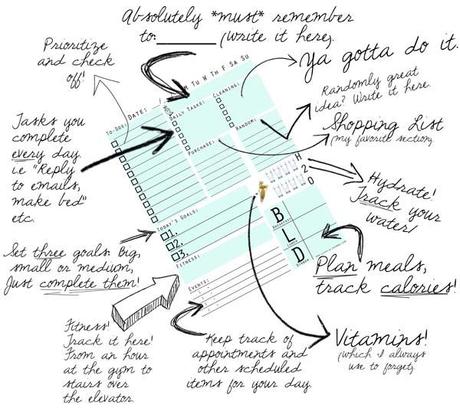 Absolutely *must* remember
to: ________ (Write it here).
Prioritize
and check
off!
Ya gotta do it.
Randomly great
idea? Write it here.
Shopping List
(my favorite section)
Tasks you
complete
every day
i.e "Reply
to emails,
make bed"
etc.
Hydrate!
Track your
water!
Set three goals: big,
small or medium,
Just complete them!
Plan meals,
track calories!
Fitness!
Track it here!
From an hour
at the gym to
stairs over
the elevator.
Keep track of
appointments and
other scheduled
items for your day.
Vitamins!
(which I always
use to forget)
DATE:
TU W TH F SA SU
TO-DO:
DAILY TASKS:
CLEANING:
PURCHASE:
RANDOM:
H2O
TODAY'S GOALS:
1.
2.
3.
B
L
D
FITNESS:
EVENTS: